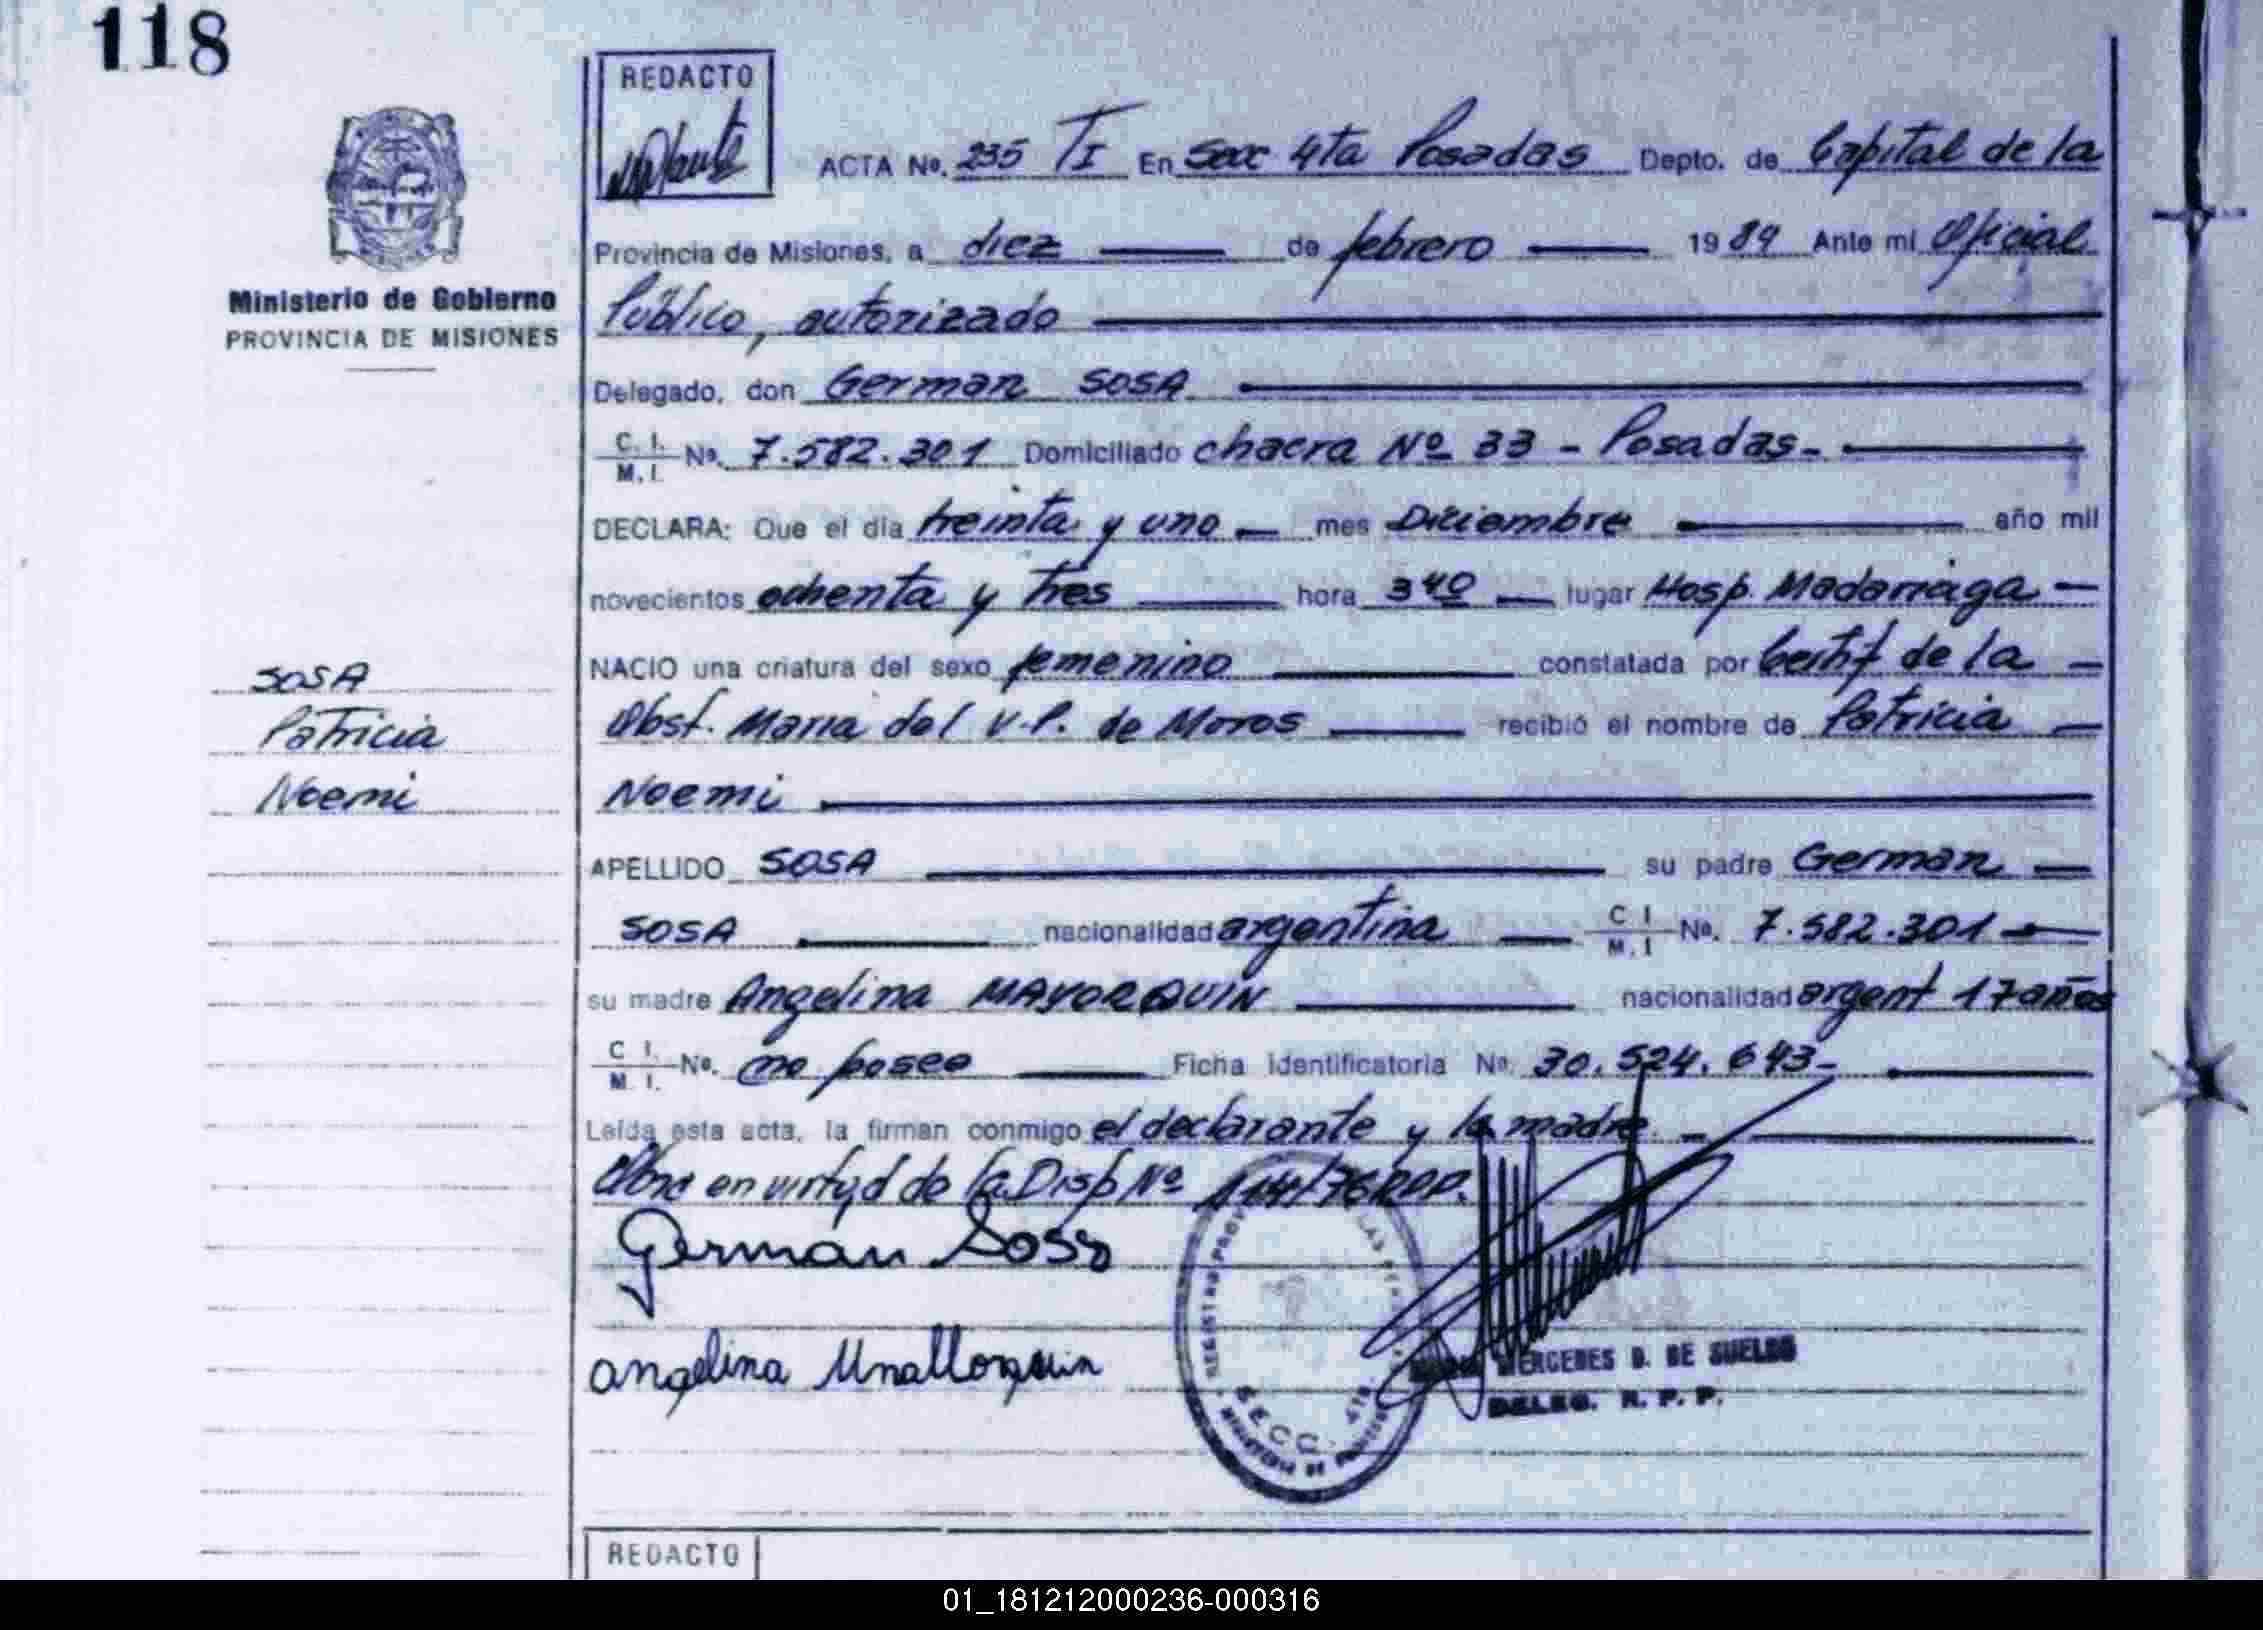 118
REDACTO
ACTA No. 235 TI En Secc 4ta Posadas Depto. de Capital de la
Provincia de Misiones, a diez de febrero 1984 Ante mi Oficial
Ministerio de Gobierno
PROVINCIA DE MISIONES
Público, autorizado
Delegado, don German SOSA
C. I. / M. I. No. 7.582.301 Domiciliado chacra Nº 33 - Posadas -
DECLARA: Que el día treinta y uno mes Diciembre año mil
novecientos ochenta y tres hora 3 40 lugar Hosp. Madariaga
SOSA
NACIO una criatura del sexo femenino constatada por Certif de la
Patricia
Obst. Maria del V.P. de Moros recibió el nombre de Patricia
Noemi
Noemi
APELLIDO SOSA su padre German
SOSA nacionalidad argentina C I / M. I No. 7.582.301
su madre Angelina MAYORQUIN nacionalidad argent 17 años
C I. / M I. No. no posee Ficha Identificatoria No 30.524.643-
Leída esta acta, la firman conmigo el declarante y la madre
en virtud de la Disp Nº 114/76
German Sosa
angelina
MERCEDES D. DE SUELDO
DELEG. R. P. P.
SECC. 4ta
REDACTO
01_181212000236-000316